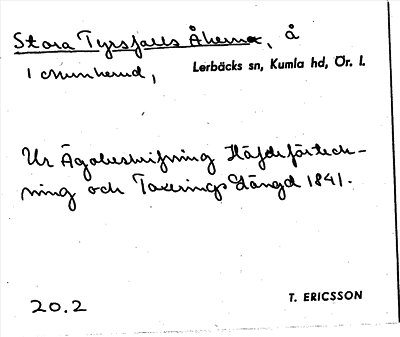 Stora Tyrsfalls Åkerna, å
1 Munkerud, Lerbäcks sn, Kumla hd, Ör. l.
Ur Ägobeskrifning Häfdeförteck-
ning och Taxerings Längd 1841.
20.2 T. ERICSSON